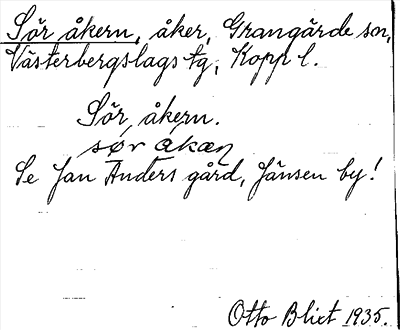 Sör åkern, åker, Grangärde sn,
Västerbergslags tg, Kopp l.
Sör, åkern.
sør åkæṇ
Se Jan Anders gård, Jänsen by!
Otto Blixt 1935.